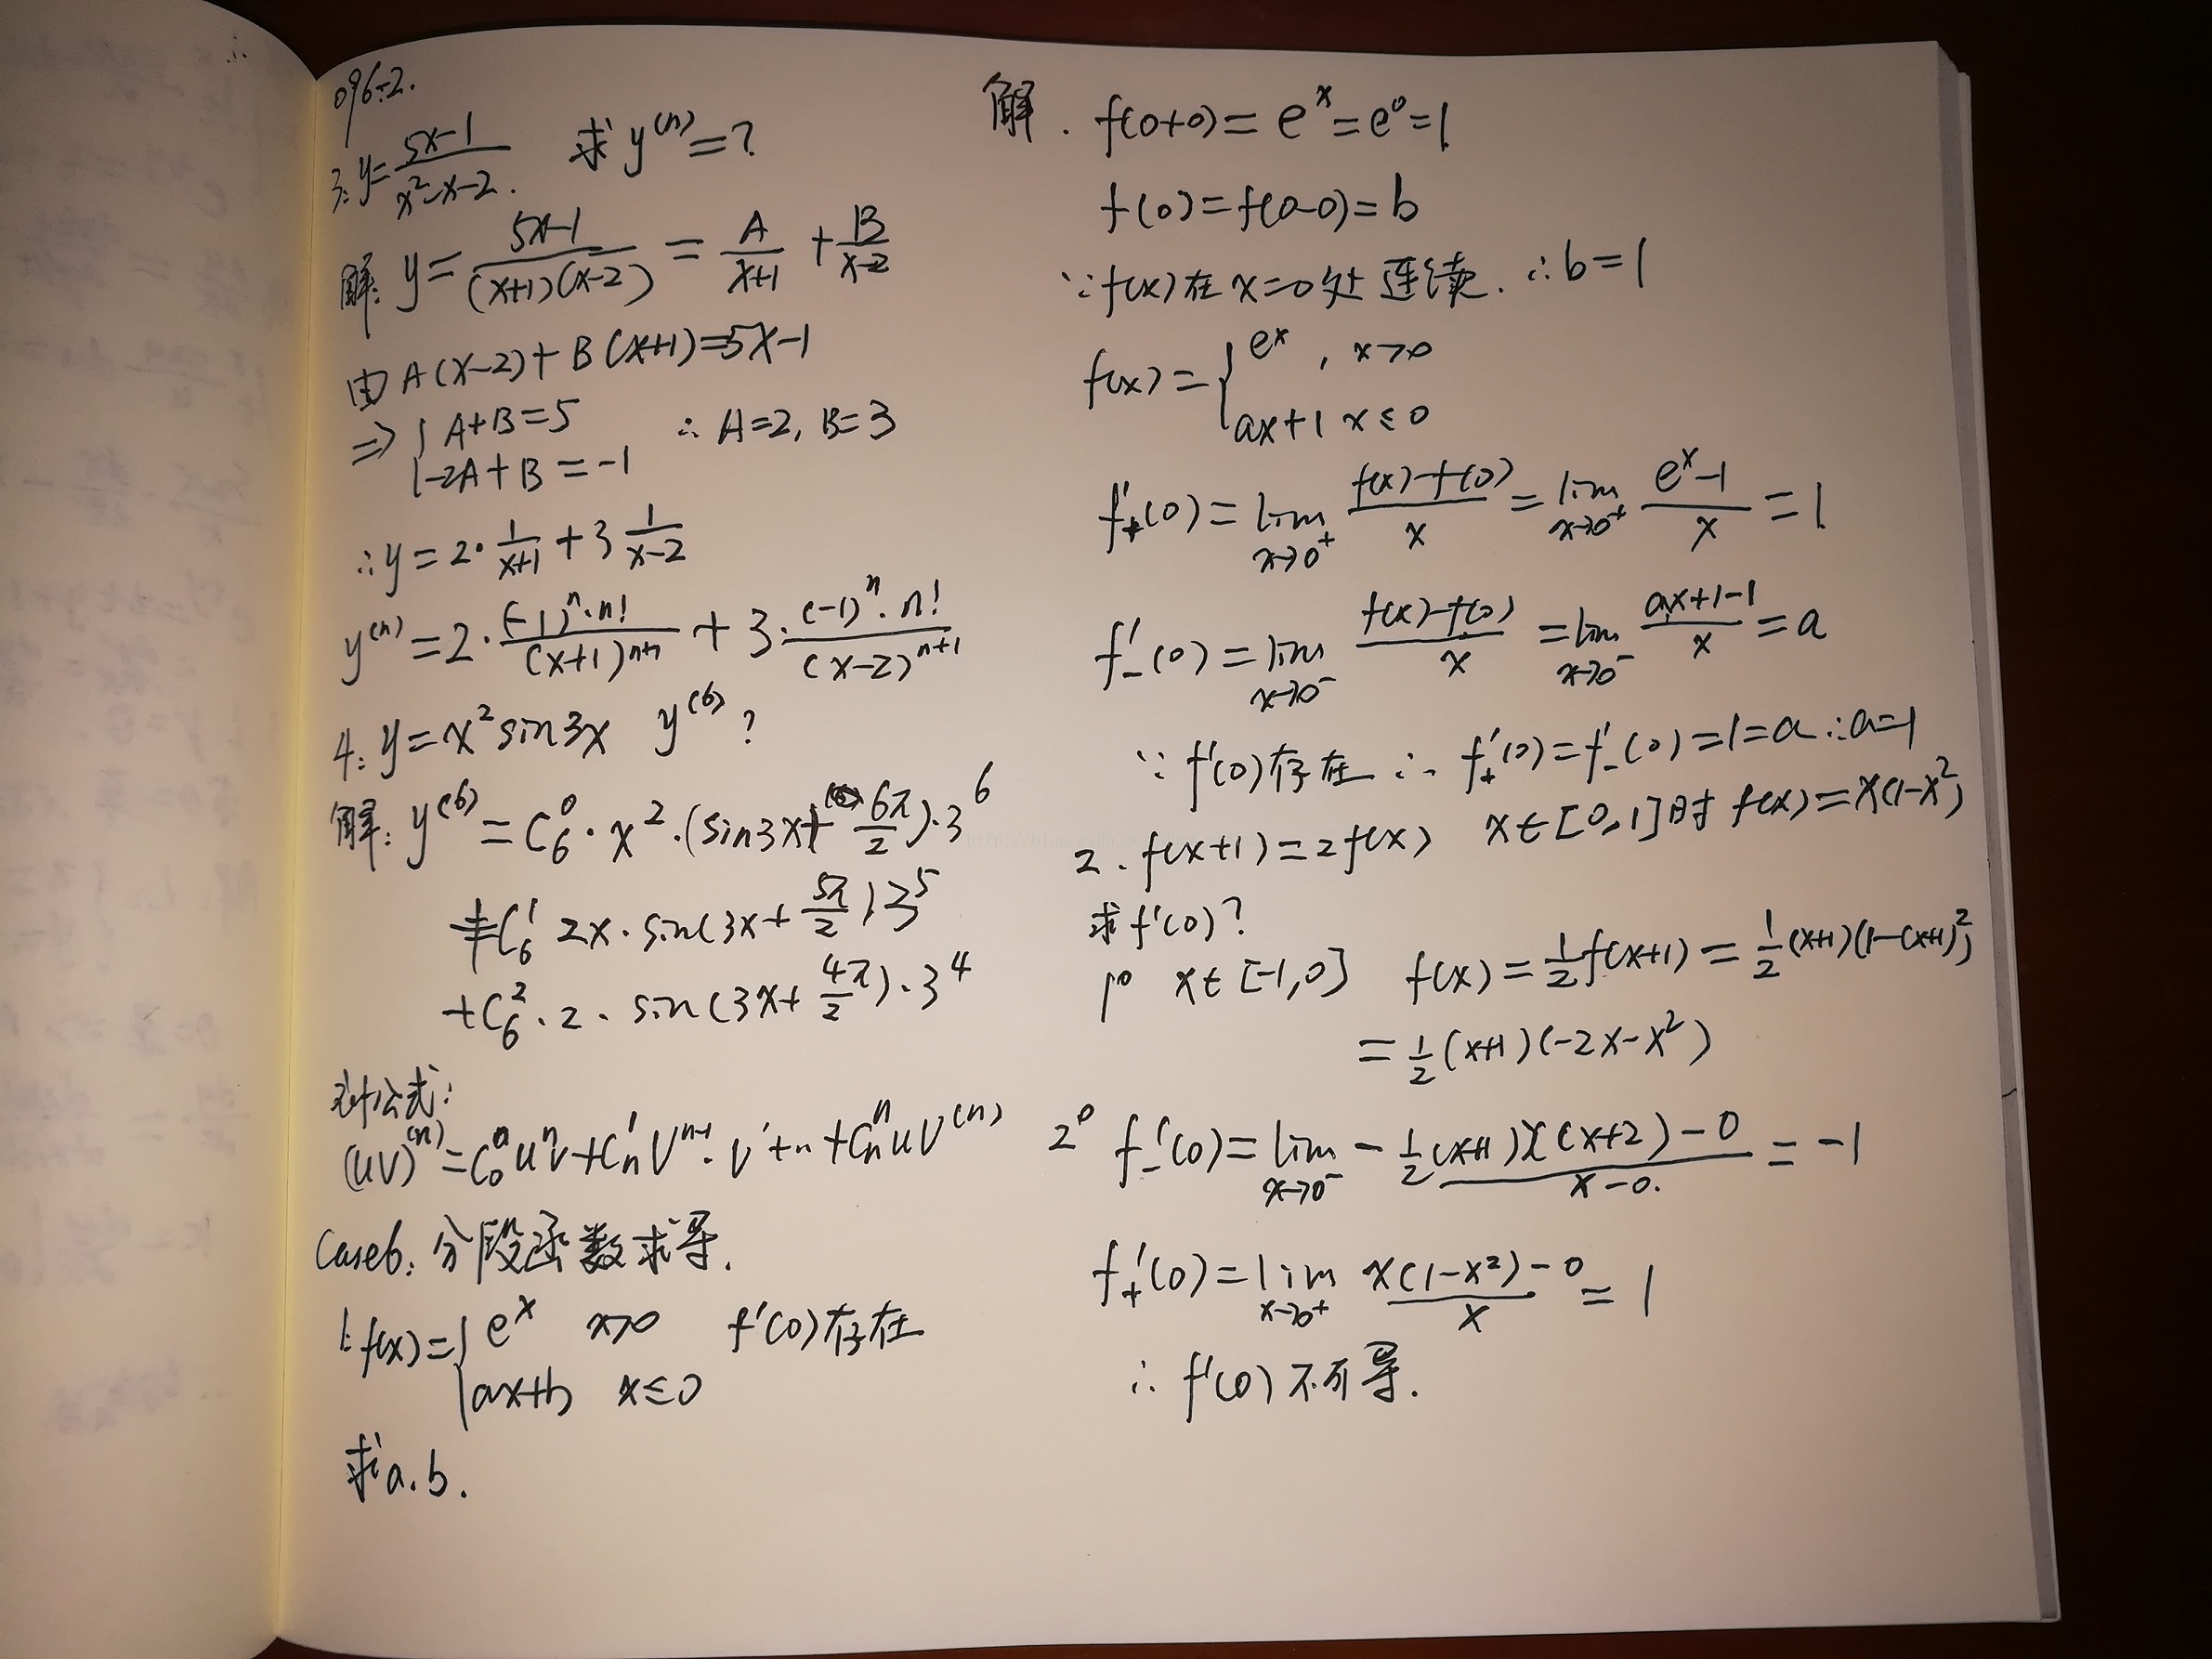 096-2.
3: y=\frac{5x-1}{x^2-x-2}. 求 y^{(n)}=?
解: y=\frac{5x-1}{(x+1)(x-2)}=\frac{A}{x+1}+\frac{B}{x-2}
由 A(x-2)+B(x+1)=5x-1
⇒ { A+B=5 ∴ A=2, B=3
-2A+B=-1
∴ y=2·\frac{1}{x+1}+3\frac{1}{x-2}
y^{(n)}=2·\frac{(-1)^n·n!}{(x+1)^{n+1}}+3·\frac{(-1)^n·n!}{(x-2)^{n+1}}
4: y=x^2sin3x y^{(6)}?
解: y^{(6)}=C_6^0·x^2·(sin3x+\frac{6π}{2})·3^6
+C_6^1 2x·sin(3x+\frac{5π}{2})3^5
+C_6^2·2·sin(3x+\frac{4π}{2})·3^4
公式:
(uv)^{(n)}=C_0^0u^nv+C_n^1V^{n-1}·v'+n+C_n^nuV^{(n)}
Case6: 分段函数求导.
1: f(x)={ e^x x>0 f'(0)存在
ax+b x≤0
求a.b.
解. f(0+0)=e^x=e^0=1
f(0)=f(0-0)=b
∵f(x)在x=0处连续.∴b=1
f(x)={ e^x, x>0
ax+1 x≤0
f'_+(0)=\lim_{x→0^+}\frac{f(x)-f(0)}{x}=\lim_{x→0^+}\frac{e^x-1}{x}=1
f'_-(0)=\lim_{x→0^-}\frac{f(x)-f(0)}{x}=\lim_{x→0^-}\frac{ax+1-1}{x}=a
∵ f'(0)存在 ∴ f'_+(0)=f'_-(0)=1=a∴a=1
2. f(x+1)=2f(x) x∈[0,1]时 f(x)=x(1-x^2)
求f'(0)?
1° x∈[-1,0] f(x)=\frac{1}{2}f(x+1)=\frac{1}{2}(x+1)(1-(x+1)^2)
=\frac{1}{2}(x+1)(-2x-x^2)
2° f'_-(0)=\lim_{x→0^-}\frac{-\frac{1}{2}(x+1)x(x+2)-0}{x-0.}=-1
f'_+(0)=\lim_{x→0^+}\frac{x(1-x^2)-0}{x}=1
∴ f'(0)不可导.